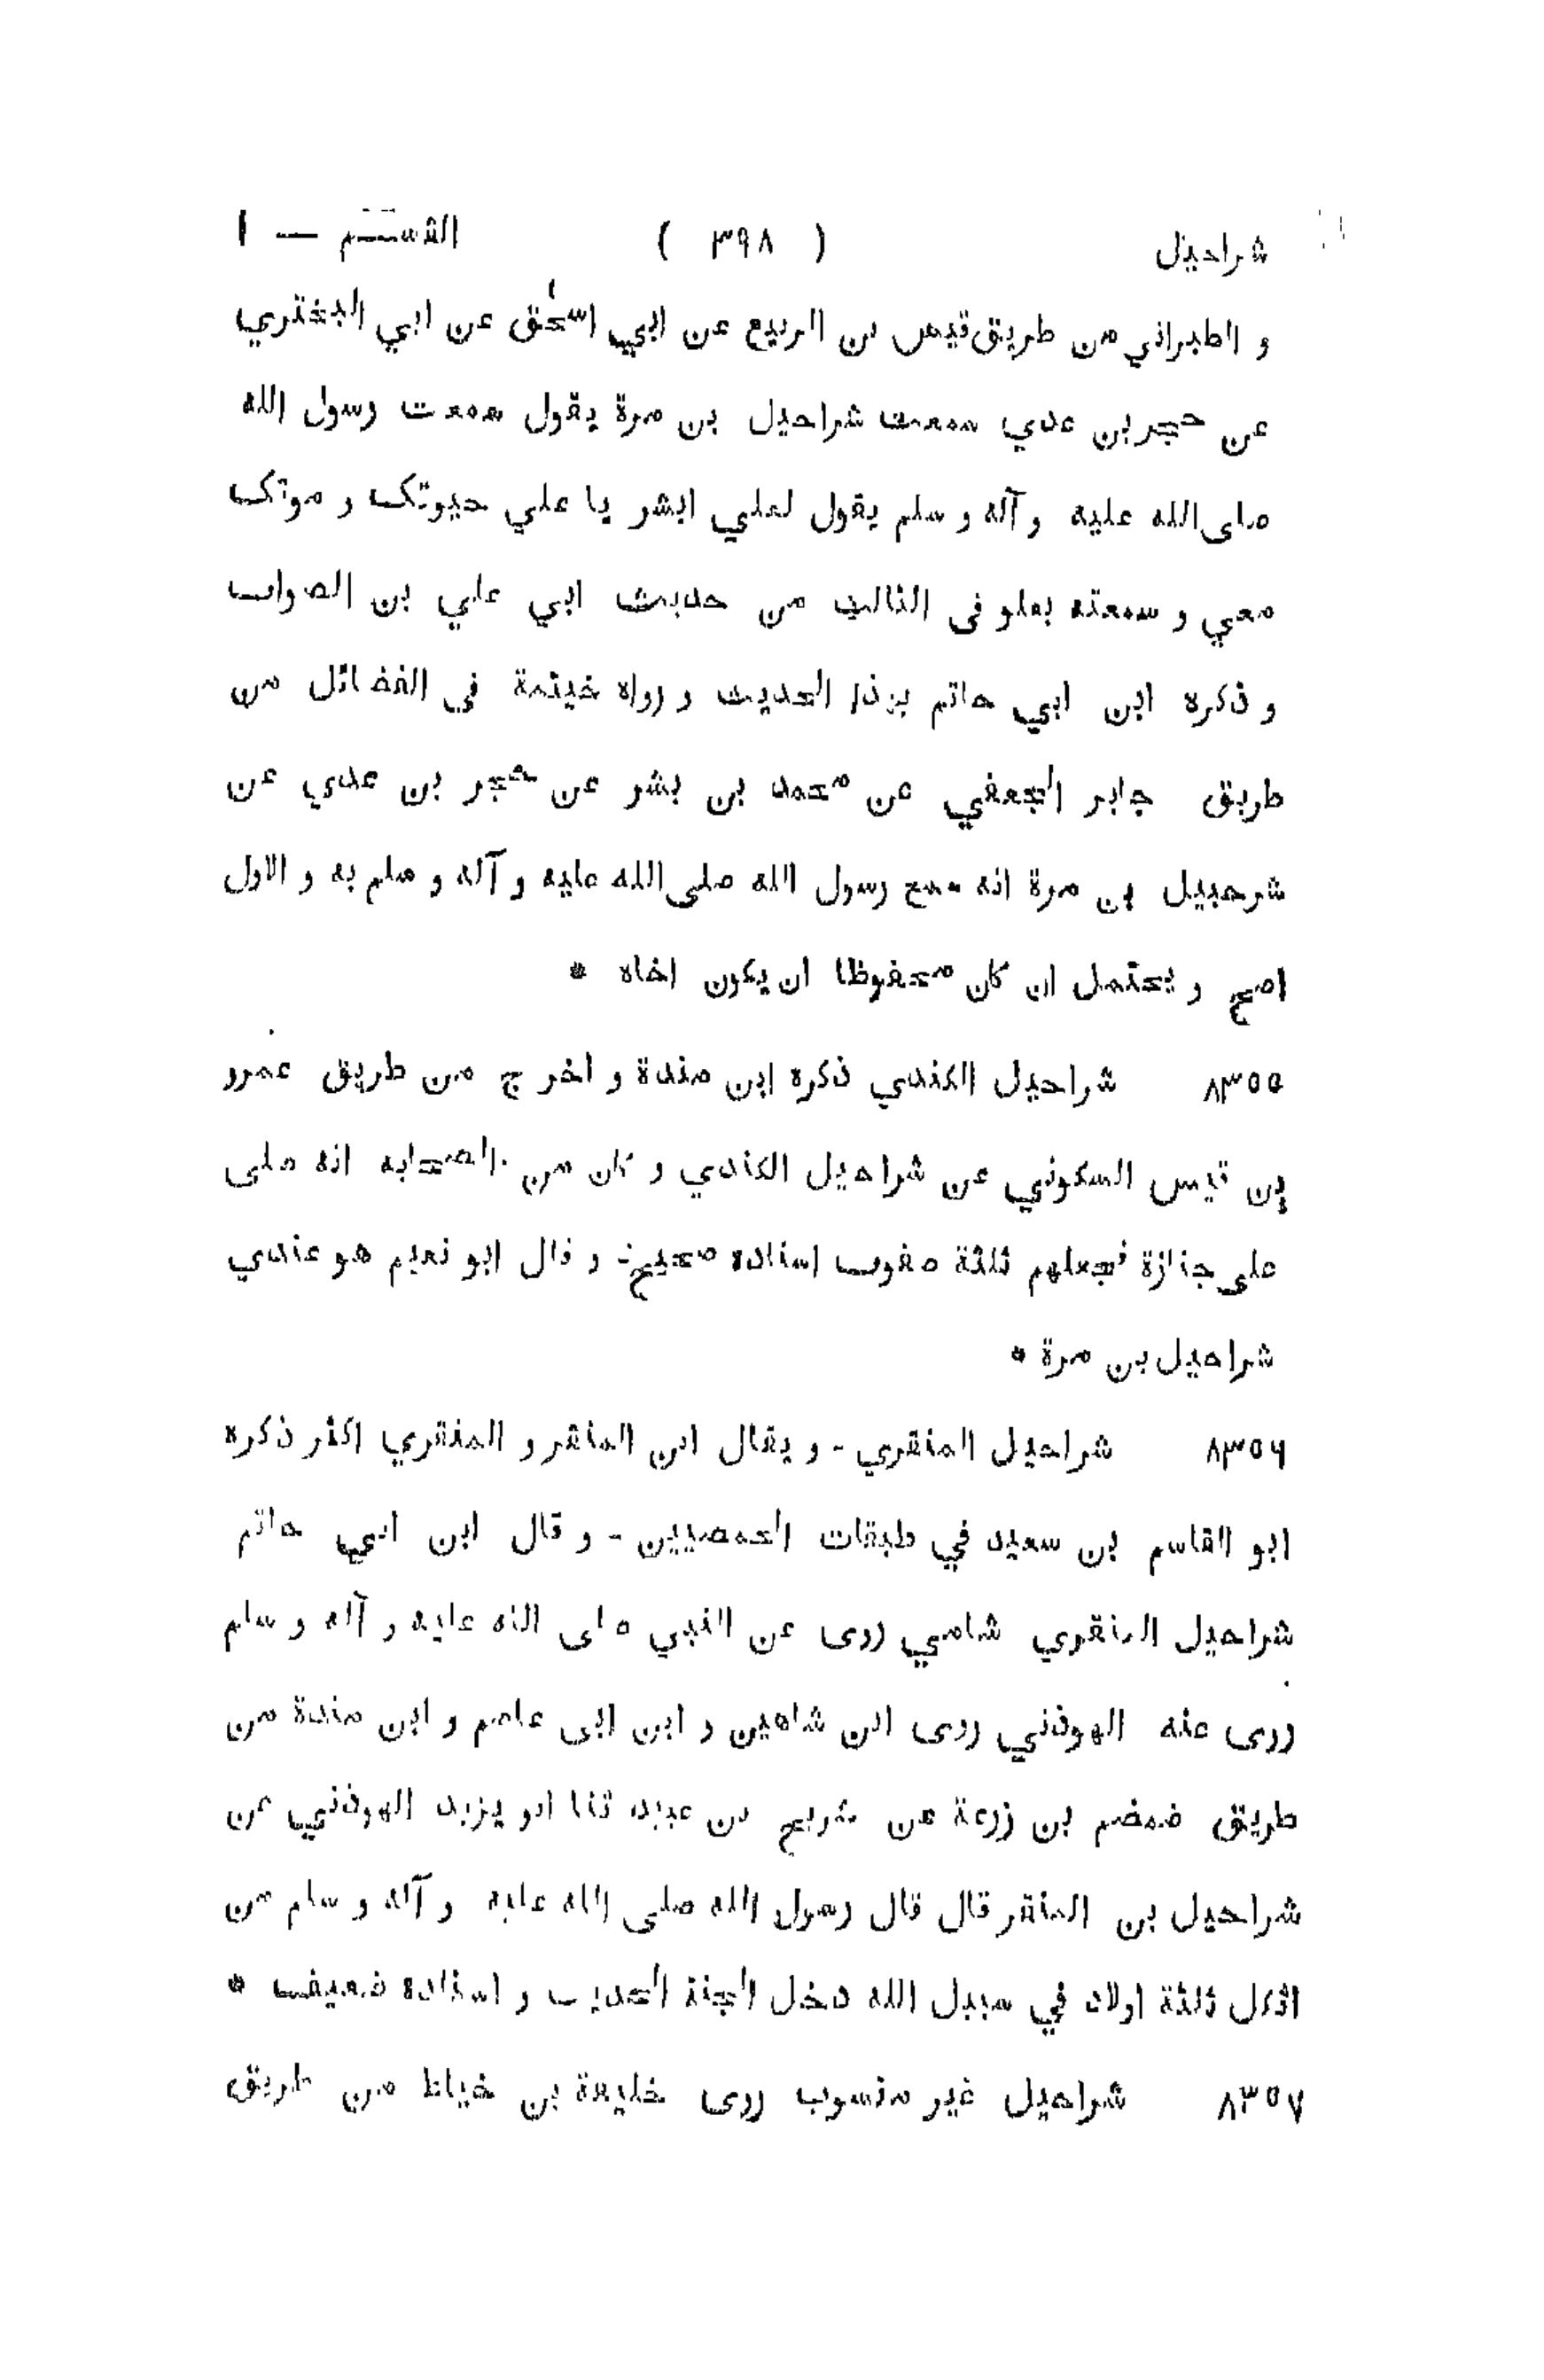 شراحيل ( ٣٩٨ ) القســـم — ١
و الطبراني من طريق قيس بن الربيع عن ابي اسحٰق عن ابي البختري
عن حجر بن عدي سمعت شراحيل بن مرة يقول سمعت رسول الله
صلى الله عليه و آله و سلم يقول لعلي ابشر يا علي حيوتك و موتك
معي و سمعته بعلو فى الثالث من حديث ابي علي بن الصواف
و ذكره ابن ابي حاتم بهذا الحديث و رواه خيثمة فى الفضائل من
طريق جابر الجعفي عن محمد بن بشر عن حجر بن عدي عن
شرحبيل بن مرة انه سمع رسول الله صلى الله عليه و آله و سلم به و الاول
اصح و يحتمل ان كان محفوظا ان يكون اخاه *
٨٣٥٥ شراحيل الكندي ذكره ابن مندة و اخرج من طريق عمرو
بن قيس السكوني عن شراحيل الكندي و كان من الصحابه انه صلى
على جنازة فجعلهم ثلثة صفوف اسناده صحيح - و قال ابو نعيم هو عندي
شراحيل بن مرة *
٨٣٥٦ شراحيل المنقري - و يقال ابن المنقر و المنقري اكثر ذكره
ابو القاسم بن سعيد في طبقات الحمصيين - و قال ابن ابي حاتم
شراحيل المنقري شامي روى عن النبي صلى الله عليه و آله و سلم
روى عنه الهوذني روى ابن شاهين و ابن ابى عاصم و ابن مندة من
طريق ضمضم بن زرعة عن شريح بن عبيد ثنا ابو يزيد الهوذني عن
شراحيل بن المنقر قال قال رسول الله صلى الله عليه و آله و سلم من
اثكل ثلثة اولاد في سبيل الله دخل الجنة الحديث و اسناده ضعيف *
٨٣٥٧ شراحيل غير منسوب روى خليفة بن خياط من طريق